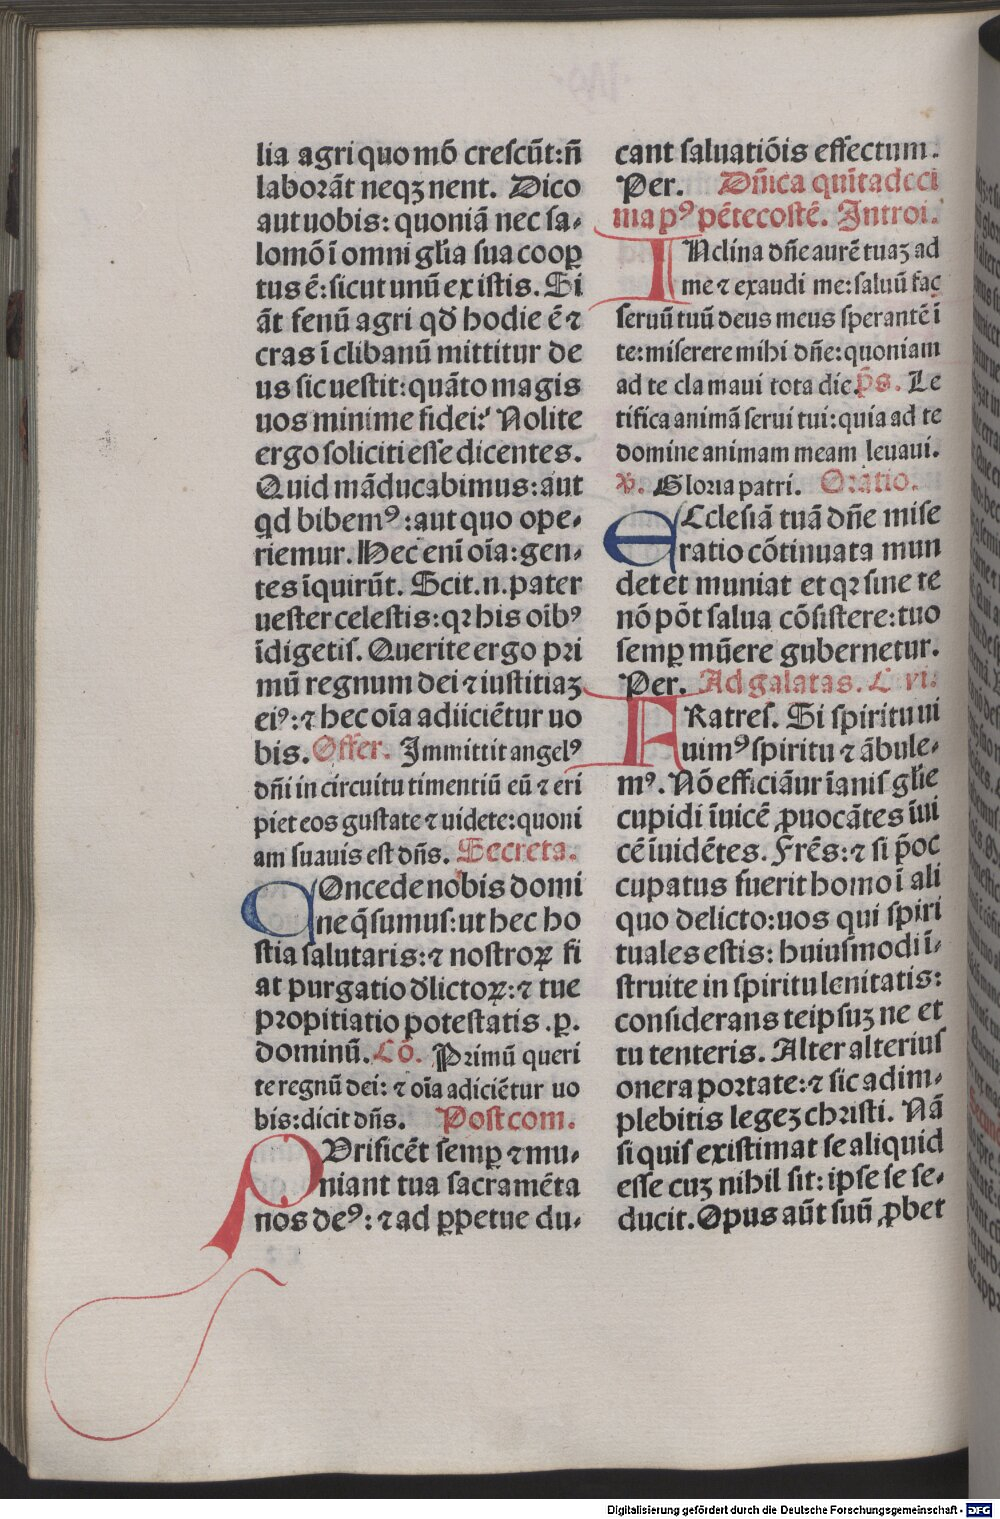 lia agri quo mō creſcūt: n̄
laborāt neqꝫ nent. Dico
aut uobis: quoniā nec ſa-
lomō ī omni gl̄ia ſua cooꝑ
tus ē: ſicut unū ex iſtis. Si
āt fenū agri qđ hodie ē ⁊
cras ī clibanū mittitur de
us ſic ueſtit: quāto magis
uos minime fidei? Nolite
ergo ſoliciti eſſe dicentes.
Quid māducabimus: aut
qd bibemꝰ: aut quo ope-
riemur. Hec enī oīa: gen-
tes īquirūt. Scit .n. pater
ueſter celeſtis: qꝛ his oībꝰ
īdigetiſ. Querite ergo pri
mū regnum dei ⁊ iuſtitiaꝫ
eiꝰ: ⁊ hec oīa adiiciētur uo
bis. Offer. Immittit angelꝰ
dn̄i in circuitu timentiū eū ⁊ eri
piet eos guſtate ⁊ uidete: quoni
am ſuauis eſt dn̄s. Secreta.
COncede nobis domi
ne q̄ſumuſ: ut hec ho
ſtia ſalutaris: ⁊ noſtroꝝ fi
at purgatio đlictoꝝ: ⁊ tue
propitiatio poteſtatis .p.
dominū. Cō. Primū queri
te regnū dei: ⁊ oīa adiciētur uo
bis: dicit dn̄s. Poſtcom.
PVrificēt ſemꝑ ⁊ mu-
niant tua ſacramēta
nos deꝰ: ⁊ ad ꝑpetue du-
cant ſaluatiōis effectum.
Per. Dn̄ica quītadeci
ma pꝰ pētecoſtē. Introi.
INclina dn̄e aurē tuaꝫ ad
me ⁊ exaudi me: ſaluū fac
ſeruū tuū deus meus ſperantē ī
te: miſerere mihi dn̄e: quoniam
ad te clamaui tota die. p̄s. Le
tifica animā ſerui tui: quia ad te
domine animam meam leuaui.
v. Gloria patri. Oratio.
ECcleſiā tuā dn̄e miſe
ratio cōtinuata mun
det et muniat et qꝛ ſine te
nō pōt ſalua cōſiſtere: tuo
ſemꝑ mūere gubernetur.
Per. Ad galatas. C. vi.
FRatreſ. Si ſpiritu ui
uimꝰ ſpiritu ⁊ ābule-
mꝰ. Nō efficiāur īaniſ gl̄ie
cupidi īuicē ꝓuocātes īui
cē īuidētes. Frēs: ⁊ ſi p̄oc
cupatus fuerit homo ī ali
quo delicto: uos qui ſpiri
tuales eſtis: huiuſmodi ī-
ſtruite in ſpiritu lenitatis:
conſiderans teipſuꝫ ne et
tu tenteris. Alter alteriuſ
onera portate: ⁊ ſic adim-
plebitis legeꝫ chriſti. Nā
ſi quis exiſtimat ſe aliquid
eſſe cuꝫ nihil ſit: ipſe ſe ſe-
ducit. Opus aūt ſuū ꝓbet
Digitalisierung gefördert durch die Deutsche Forschungsgemeinschaft - DFG